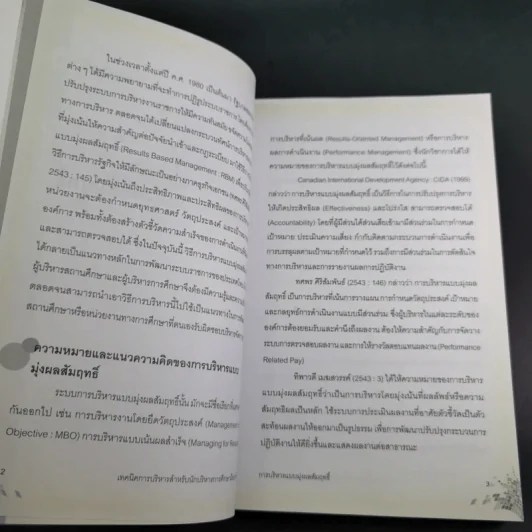 ในช่วงเวลาตั้งแต่ปี ค.ศ. 1980 เป็นต้นมา
ต่าง ๆ ได้มีความพยายามที่จะทำการปฏิรูประบบราชการ
ปรับปรุงระบบการบริหารงานราชการให้มีความทันสมัย
ทางการบริหาร ตลอดจนได้เปลี่ยนแปลงกระบวนทัศน์การบริหาร
ที่มุ่งเน้นให้ความสำคัญต่อปัจจัยนำเข้าและกฎระเบียบ มาใช้วิธี
แบบมุ่งผลสัมฤทธิ์ (Results Based Management : RBM) เพื่อ
วิธีการบริหารรัฐกิจให้มีลักษณะเป็นอย่างภาคธุรกิจเอกชน
2543 : 145) โดยมุ่งเน้นถึงประสิทธิภาพและประสิทธิผลของ
หน่วยงานจะต้องกำหนดยุทธศาสตร์ วัตถุประสงค์ และเป้าหมาย
องค์การ พร้อมทั้งต้องสร้างตัวชี้วัดความสำเร็จของการดำเนินงาน
และสามารถตรวจสอบได้ ซึ่งในปัจจุบันนี้ วิธีการบริหารแบบมุ่งผลสัมฤทธิ์
ได้กลายเป็นแนวทางหลักในการพัฒนาระบบราชการของประเทศ
ผู้บริหารสถานศึกษาและผู้บริหารการศึกษาจึงต้องมีความรู้และ
ตลอดจนสามารถนำเอาวิธีการบริหารนี้ไปใช้เป็นแนวทางในการ
สถานศึกษาหรือหน่วยงานทางการศึกษาที่ตนเองรับผิดชอบบริหาร
ความหมายและแนวความคิดของการบริหารแบบ
มุ่งผลสัมฤทธิ์
ระบบการบริหารแบบมุ่งผลสัมฤทธิ์นั้น มักจะมีชื่อเรียก
กันออกไป เช่น การบริหารงานโดยยึดวัตถุประสงค์ (Management
Objective : MBO) การบริหารแบบเน้นผลสำเร็จ (Managing for
2
เทคนิคการบริหารสำหรับนักบริหารการศึกษา
การบริหารที่เน้นผล (Results-Oriented Management) หรือการบริหาร
ผลการดำเนินงาน (Performance Management) ซึ่งนักวิชาการได้ให้
ความหมายของการบริหารแบบมุ่งผลสัมฤทธิ์ไว้ดังต่อไปนี้
Canadian International Development Agency : CIDA (1999)
กล่าวว่า การบริหารแบบมุ่งผลสัมฤทธิ์ เป็นวิธีการในการปรับปรุงการบริหาร
ให้เกิดประสิทธิผล (Effectiveness) และโปร่งใส สามารถตรวจสอบได้
(Accountability) โดยที่ผู้มีส่วนได้ส่วนเสียเข้ามามีส่วนร่วมในการกำหนด
เป้าหมาย ประเมินความเสี่ยง กำกับติดตามกระบวนการดำเนินงานเพื่อ
การบรรลุผลตามเป้าหมายที่กำหนดไว้ รวมถึงการมีส่วนร่วมในการตัดสินใจ
ทางการบริหารและการรายงานผลการปฏิบัติงาน
ทศพร ศิริสัมพันธ์ (2543 : 146) กล่าวว่า การบริหารแบบมุ่งผล
สัมฤทธิ์ เป็นการบริหารที่เน้นการวางแผน การกำหนดวัตถุประสงค์ เป้าหมาย
และกลยุทธ์การดำเนินงานแบบมีส่วนร่วม ซึ่งผู้บริหารในแต่ละระดับของ
องค์การต้องยอมรับและคำนึงถึงผลงาน ต้องให้ความสำคัญกับการจัดวาง
ระบบการตรวจสอบผลงาน และการให้รางวัลตอบแทนผลงาน (Performance
Related Pay)
ทิพาวดี เมฆสวรรค์ (2543 : 3) ได้ให้ความหมายของการบริหาร
แบบมุ่งผลสัมฤทธิ์ว่าเป็นการบริหารโดยมุ่งเน้นที่ผลลัพธ์หรือความ
สัมฤทธิผลเป็นหลัก ใช้ระบบการประเมินผลงานที่อาศัยตัวชี้วัดเป็นตัว
สะท้อนผลงานให้ออกมาเป็นรูปธรรม เพื่อการพัฒนาปรับปรุงกระบวนการ
ปฏิบัติงานให้ดียิ่งขึ้นและแสดงผลงานต่อสาธารณะ
การบริหารแบบมุ่งผลสัมฤทธิ์
3